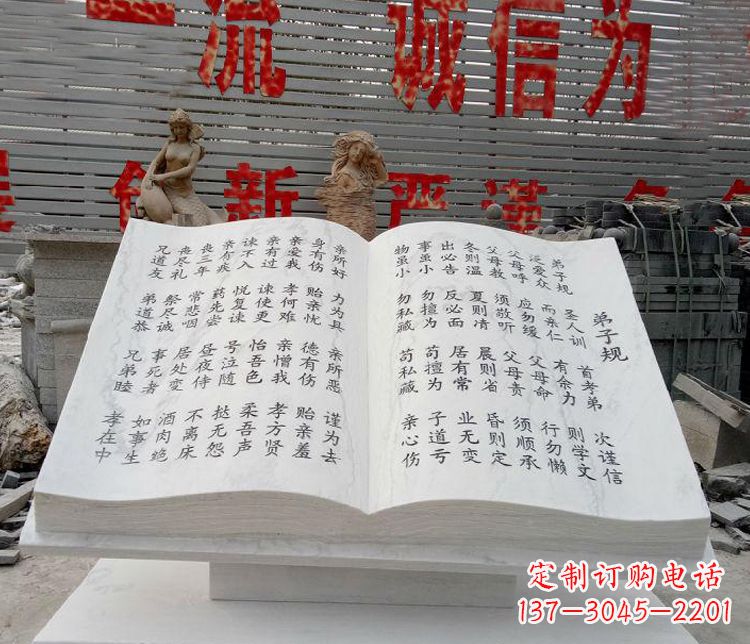 一流 诚信为
创新 严谨
弟子规
弟子规 圣人训 首孝弟 次谨信
泛爱众 而亲仁 有余力 则学文
父母呼 应勿缓 父母命 行勿懒
父母教 须敬听 父母责 须顺承
冬则温 夏则清 晨则省 昏则定
出必告 反必面 居有常 业无变
事虽小 勿擅为 苟擅为 子道亏
物虽小 勿私藏 苟私藏 亲心伤
亲所好 力为具 亲所恶 谨为去
身有伤 贻亲忧 德有伤 贻亲羞
亲爱我 孝何难 亲憎我 孝方贤
亲有过 谏使更 怡吾色 柔吾声
谏不入 悦复谏 号泣随 挞无怨
亲有疾 药先尝 昼夜侍 不离床
丧三年 常悲咽 居处变 酒肉绝
丧尽礼 祭尽诚 事死者 如事生
兄道友 弟道恭 兄弟睦 孝在中
定制订购电话
137-3045-2201